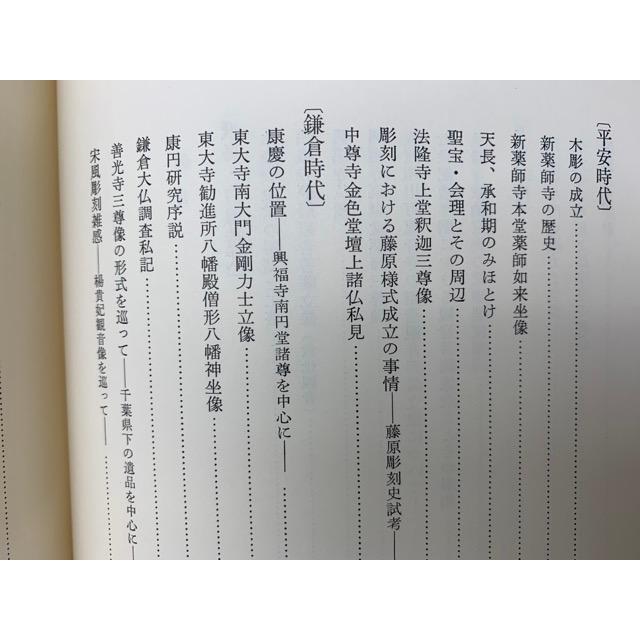 〔平安時代〕
木彫の成立
新薬師寺の歴史
新薬師寺本堂薬師如来坐像
天長、承和期のみほとけ
聖宝・会理とその周辺
法隆寺上堂釈迦三尊像
彫刻における藤原様式成立の事情――藤原彫刻史試考―
中尊寺金色堂壇上諸仏私見
〔鎌倉時代〕
康慶の位置――興福寺南円堂諸尊を中心に――
東大寺南大門金剛力士立像
東大寺勧進所八幡殿僧形八幡神坐像
康円研究序説
鎌倉大仏調査私記
善光寺三尊像の形式を巡って――千葉県下の遺品を中心に―
宋風彫刻雑感――楊貴妃観音像を巡って――